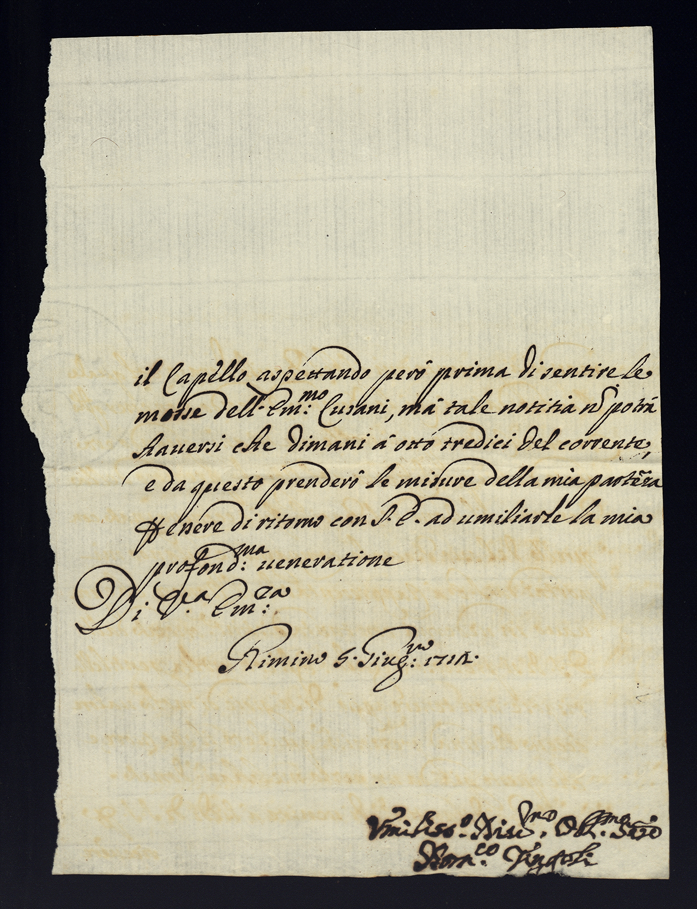 il Capello aspettando però prima di sentire le
mosse dell'Em:mo Cusani, mà tale notitia nō potrà
hauersi che dimani à otto tredici del corrente,
e da questo prenderò le misure della mia partēza
essere di ritorno con V. E. ad umiliarle la mia
profond:ma ueneratione
Di V.ra Em:za
Rimino 5. Giug:no 1712.